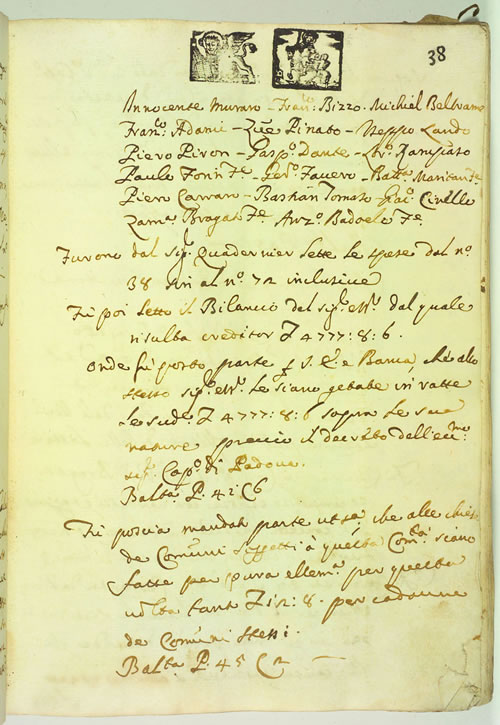 38
Innocente Muraro - Franco: Bizzo. Michiel Beltrame
Franco: Adami - Zue Pinato - Zando
Piero Piron - Gaspo: Dante - Rampato
Paulo Fauero - Batta:
Piero Carraro - Bastian Tomato Cinello
Zama: Bragato Badoelo
Furono dal sigr. Quadernier Lette Le spese dal no.
38 sin al no. 72 inclusive
Fu poi Letto il Bilancio del sigr. dal quale
risulta creditor £ 4777:8:6.
Onde fù posto parte che allo
stesso sigr. Le siano gettate in ratte
Le sude. £ 4777:8:6 sopra Le sue
nature previo il decreto dell'eccmo.
Capo. di Padoua.
Balta. P. 42: C 6
Fu poscia mandata parte che alle chiese
de Comuni à questa siano
fatte per pura ellema. per questa
uolta tant £ 12:8. per cadauna
de Comuni stessi.
Balta. P. 45 C 2